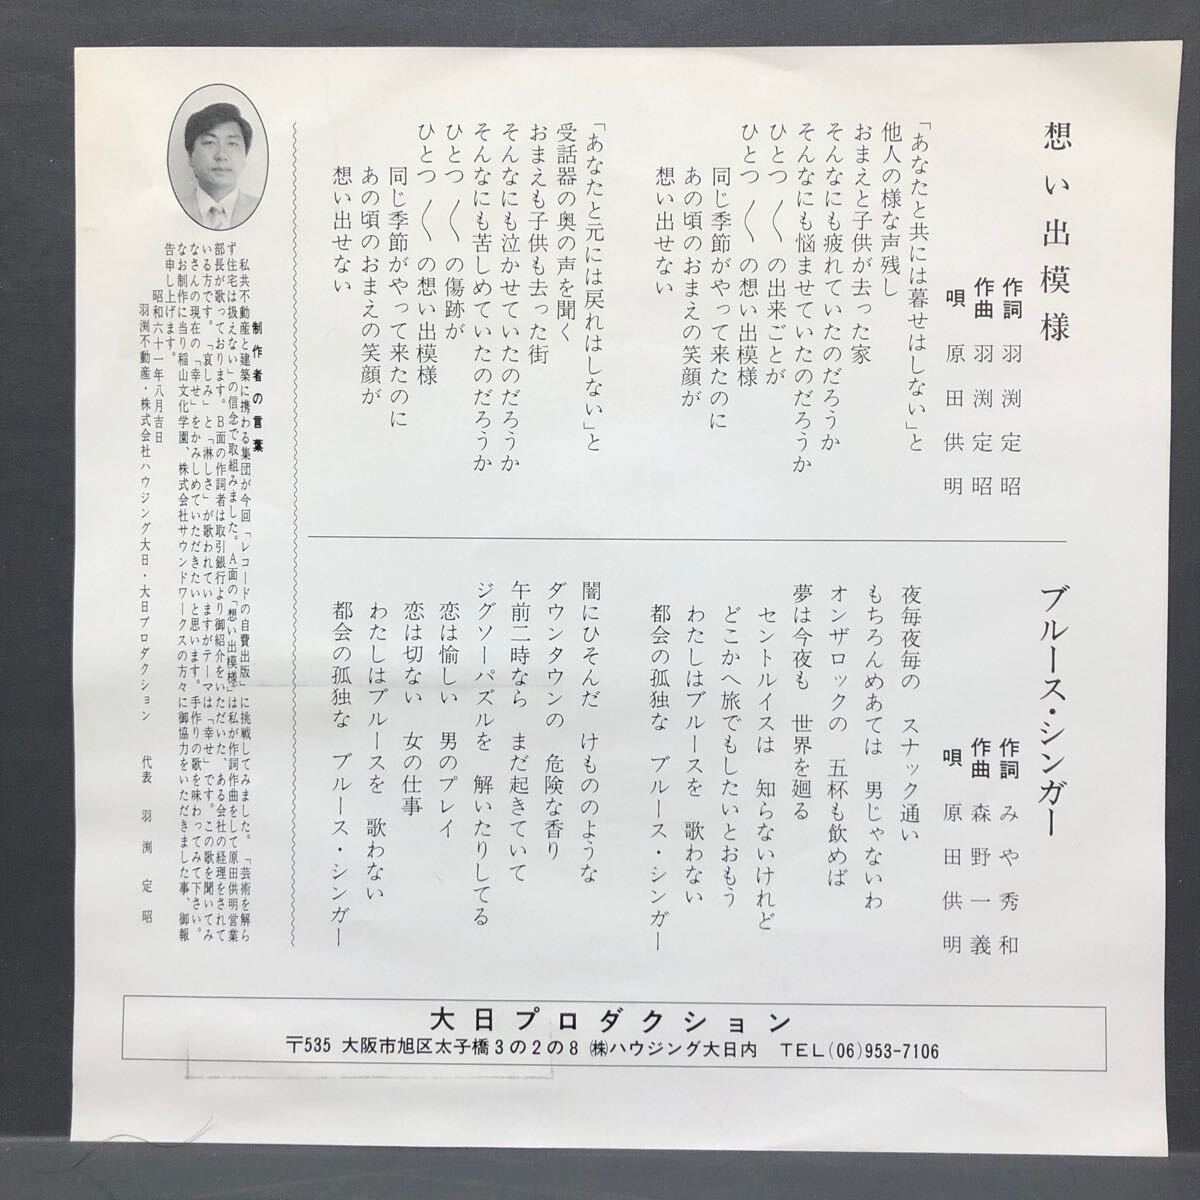 想い出模様
作詞 羽渕定昭
作曲 羽渕定昭
唄 原田供明
「あなたと共には暮せはしない」と
他人の様な声残し
おまえと子供が去った家
そんなにも疲れていたのだろうか
そんなにも悩ませていたのだろうか
ひとつ〱の出来ごとが
ひとつ〱の想い出模様
同じ季節がやって来たのに
あの頃のおまえの笑顔が
想い出せない
「あなたと元には戻れはしない」と
受話器の奥の声を聞く
おまえも子供も去った街
そんなにも泣かせていたのだろうか
そんなにも苦しめていたのだろうか
ひとつ〱の傷跡が
ひとつ〱の想い出模様
同じ季節がやって来たのに
あの頃のおまえの笑顔が
想い出せない
ブルース・シンガー
作詞 みや秀和
作曲 森野一義
唄 原田供明
夜毎夜毎の スナック通い
もちろんめあては 男じゃないわ
オンザロックの 五杯も飲めば
夢は今夜も 世界を廻る
セントルイスは 知らないけれど
どこかへ旅でもしたいとおもう
わたしはブルースを 歌わない
都会の孤独な ブルース・シンガー
闇にひそんだ けもののような
ダウンタウンの 危険な香り
午前二時なら まだ起きていて
ジグソーパズルを 解いたりしてる
恋は愉しい 男のプレイ
恋は切ない 女の仕事
わたしはブルースを 歌わない
都会の孤独な ブルース・シンガー
制作者の言葉
私共不動産と建築に携わる集団が今回「レコードの自費出版」に挑戦してみました。「芸術を解ら
ず住宅は扱えない」の信念で取組みました。A面の「想い出模様」は私が作詞作曲をして原田供明営業
部長が歌っております。B面の作詞者は取引銀行より御紹介をいただいた、ある会社の経理をされて
いる方です。「哀しみ」と「淋しさ」が歌われていますがテーマは「幸せ」です。この歌を聞いてみ
なさんの現在の「幸せ」をかみしめていただきたいと思います。手作りの歌を味わってみて下さい。
なお制作に当り稲山文化学園、株式会社サウンドワークスの方々に御協力をいただきました事、御報
告申し上げます。
昭和六十一年八月吉日
羽渕不動産・株式会社ハウジング大日・大日プロダクション 代表 羽渕定昭
大日プロダクション
〒535 大阪市旭区太子橋3の2の8 ㈱ハウジング大日内 TEL(06)953-7106